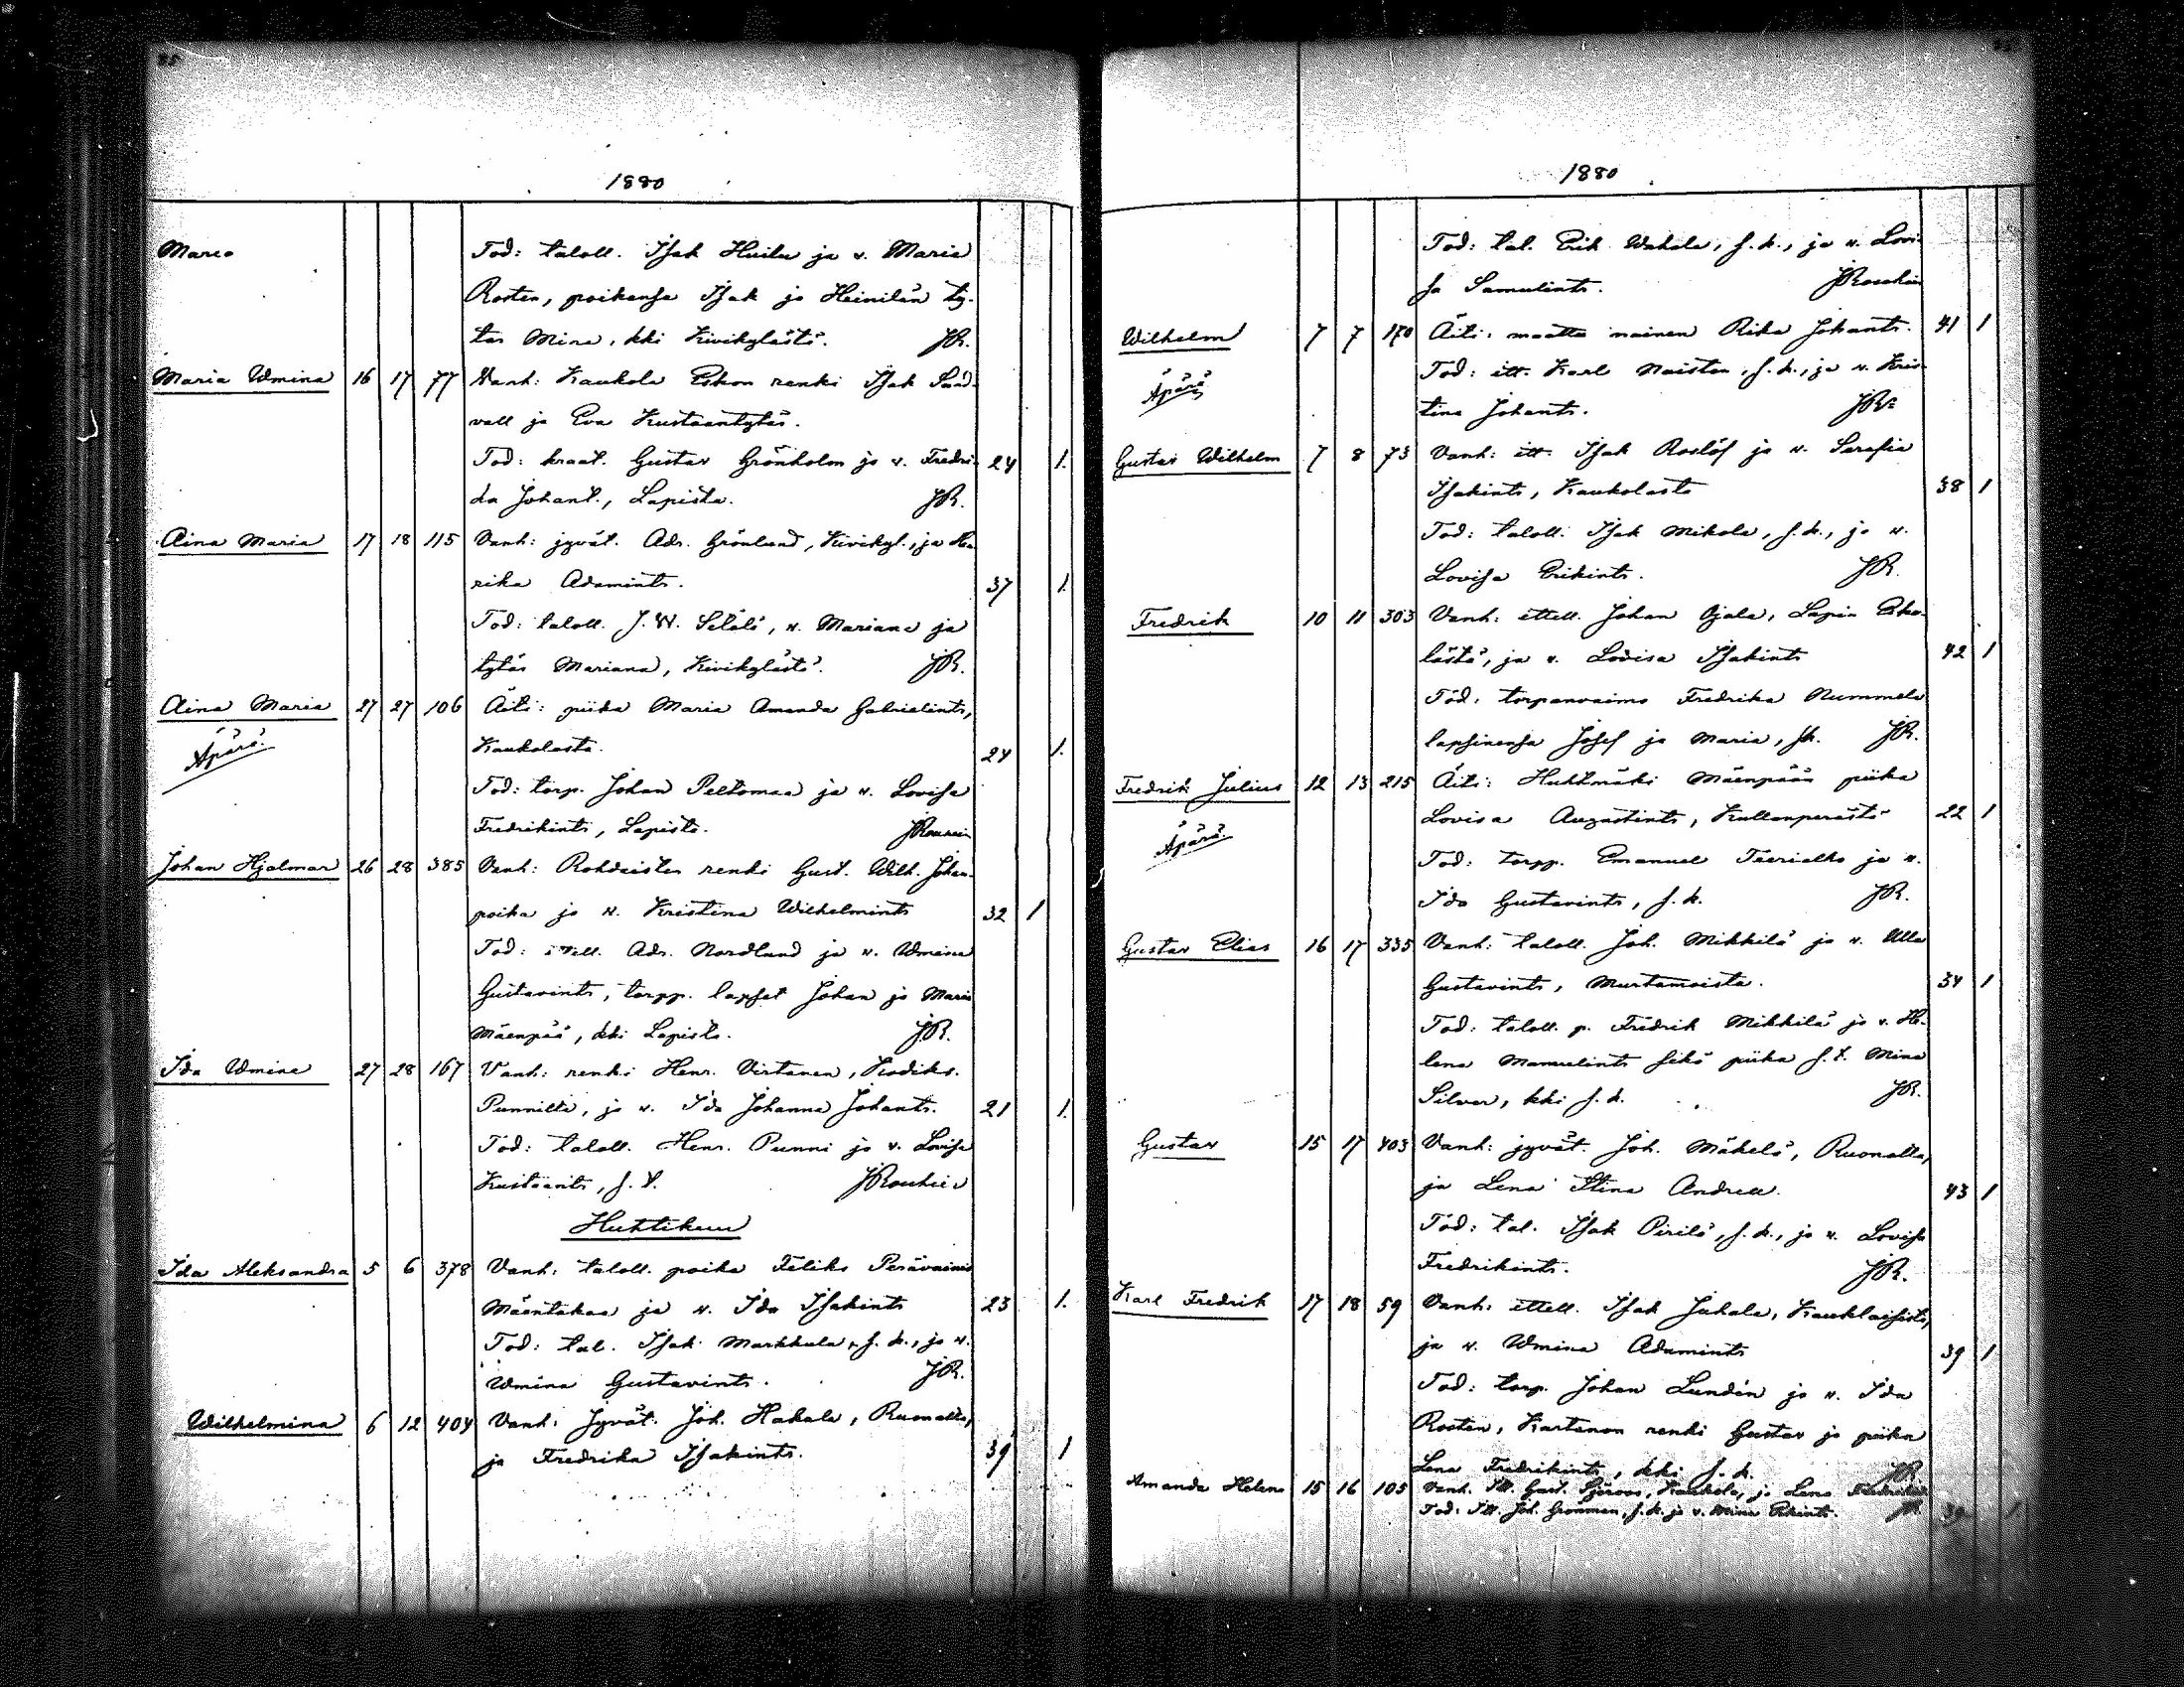 85
1880
Marc. Tod: taloll. Isak Huilu ja v. Maria
Rosten, poikansa Isak ja Heinilän ty-
tär Mina, kki Kivikylästä. JR.
Maria Wmina 16 17 77 Vanh: Kaukola Eskon renki Isak Sand-
vall ja Eva Kustaantytär.
Tod: kraat. Gustav Grönholm ja v. Fredri- 24 1.
ka Johant., Lapista. JR.
Aina Maria 17 18 115 Vanh: jyvät. Adr. Grönlund, Kivikyl., ja Hen-
rika Adamints. 37 1.
Tod: taloll. J. W. Sälilä, v. Mariana ja
tytär Mariana, Kivikylästä. JR.
Aina Maria 27 27 106 Äiti: piika Maria Amanda Gabrielints,
Äpärä. Kaukolasta. 24 1.
Tod: torp. Johan Peltomaa ja v. Lovisa
Fredrikints, Lapista. JRouhiai
Johan Hjalmar 26 28 385 Vanh: Rohdaisten renki Gust. Wilh. Johan-
poika ja v. Kristina Wilhelmints 32 1
Tod: ittell. Adr. Nordlund ja v. Wmina
Gustavints, torpp. lapset Johan ja Maria
Mäenpää, kki Lapista. JR.
Ida Wmina 27 28 167 Vanh: renki Henr. Virtanen, Kodiks.
Punnilta, ja v. Ida Johanna Johants. 21 1.
Tod: taloll. Henr. Punni ja v. Lovisa
Kustaants, s. t.
Huhtikuu
Ida Aleksandra 5 6 378 Vanh: taloll. poika Feliks Perävainio
Mäentakaa ja v. Ida Isakints 23 1.
Tod: tal. Isak Markkula, s. k., ja v.
Wmina Gustavints. JR.
Wilhelmina 6 12 404 Vanh: Jyvät. Joh. Hakala, Ruonalta,
ja Fredrika Isakints. 39 1
1880
Tod: tal. Erik Wahala, s. k., ja v. Lovi-
sa Samulints.
Wilhelm 7 7 170 Äiti: maatto nainen Rika Johants. 41 1
Äpärä Tod: itt. Karl Naisten, s. k., ja v. Kris-
tina Johants. JR.
Gustav Wilhelm 7 8 73 Vanh: itt. Isak Roslöf ja v. Serafia
Isakints, Kaukolasta 38 1
Tod: taloll. Isak Mikola, s. k., ja v.
Lovisa Erikints. JR.
Fredrik 10 11 303 Vanh: ittell. Johan Ojala, Lapin
lästä, ja v. Lovisa Isakints 42 1
Tod: torpanvaimo Fredrika Nummela
lapsinensa Josef ja Maria, sk. JR.
Fredrik Julius 12 13 215 Äiti: Huhtmäki Mäenpään piika
Äpärä. Lovisa Augustints, Kullanperästä 22 1
Tod: torpp. Emanuel Tierialho ja v.
Ida Gustavints, s. k. JR.
Gustav Elias 16 17 335 Vanh: taloll. Joh. Mikkilä ja v. Ulla
Gustavints, Murtamoista. 34 1
Tod: taloll. p. Fredrik Mikkilä ja v. He-
lena Manuelints sekä piika s. t. Mina
Silver, kki s. k. JR.
Gustav 15 17 403 Vanh: jyvät. Joh. Mäkelä, Ruonalta,
ja Lena Stina Andrea. 43 1
Tod: tal. Isak Pirilä, s. k., ja v. Lovisa
Fredrikints. JR.
Karl Fredrik 17 18 59 Vanh: ittell. Isak Juhala, Kauklaisista,
ja v. Wmina Adamints 39 1
Tod: torp. Johan Lundén ja v. Ida
Rosten, Kartanon renki Gustav ja piika
Lena Fredrikints, kki s. k. JR.
Amanda Helena 15 16 105 Vanh. Itt. Gust. Sjöroos, Kaukola, ja Lena Fredrikints
Tod: Itt. Joh. Grönman, s. k. ja v. Mina Erkints. JR. 39 1